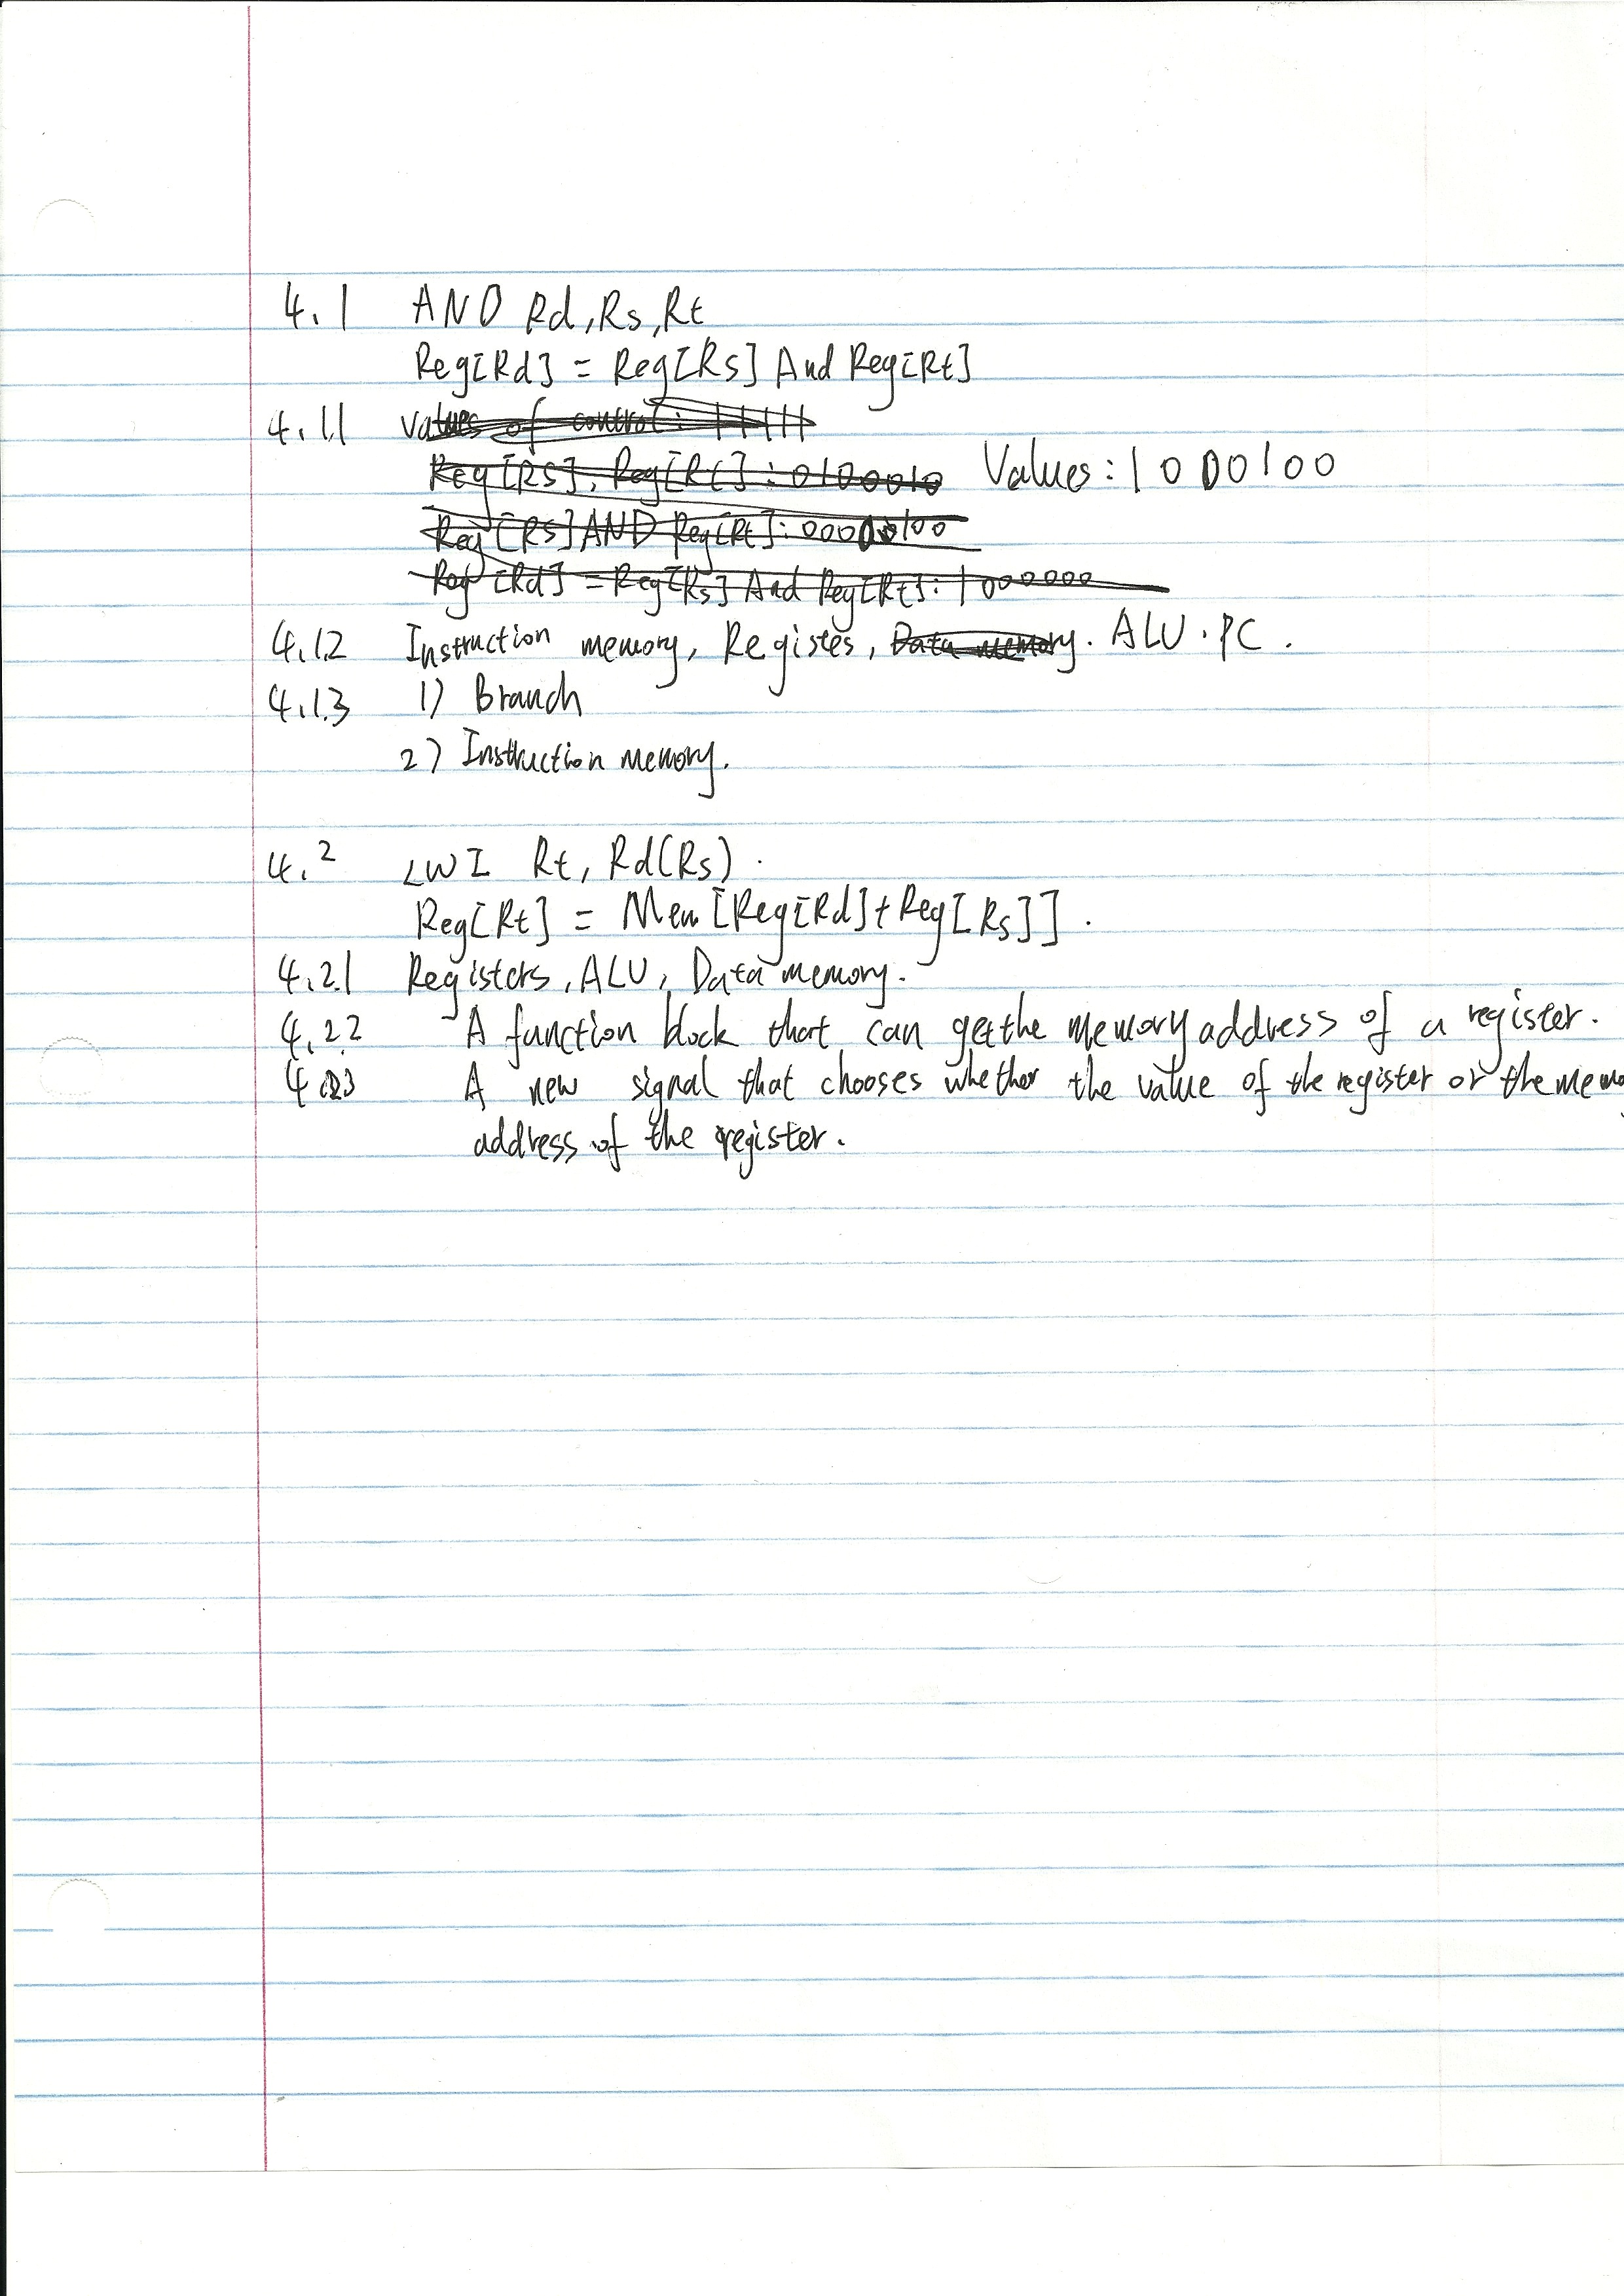 4.1 AND Rd, Rs, Rt
Reg[Rd] = Reg[Rs] And Reg[Rt]
4.1.1 Values of control:
Reg[Rs], Reg[Rt]: 0100010 Values: 1000100
Reg[Rs] AND Reg[Rt]:
Reg[Rd] = Reg[Rs] And Reg[Rt]: 1000000
4.1.2 Instruction memory, Registes, Data memory. ALU. PC.
4.1.3 1) Branch
2) Instruction memory.
4.2 LWI Rt, Rd(Rs).
Reg[Rt] = Mem[Reg[Rd]+Reg[Rs]].
4.2.1 Registers, ALU, Data memory.
4.2.2 A function block that can get the memory address of a register.
4.2.3 A new signal that chooses whether the value of the register or the memo
address of the register.